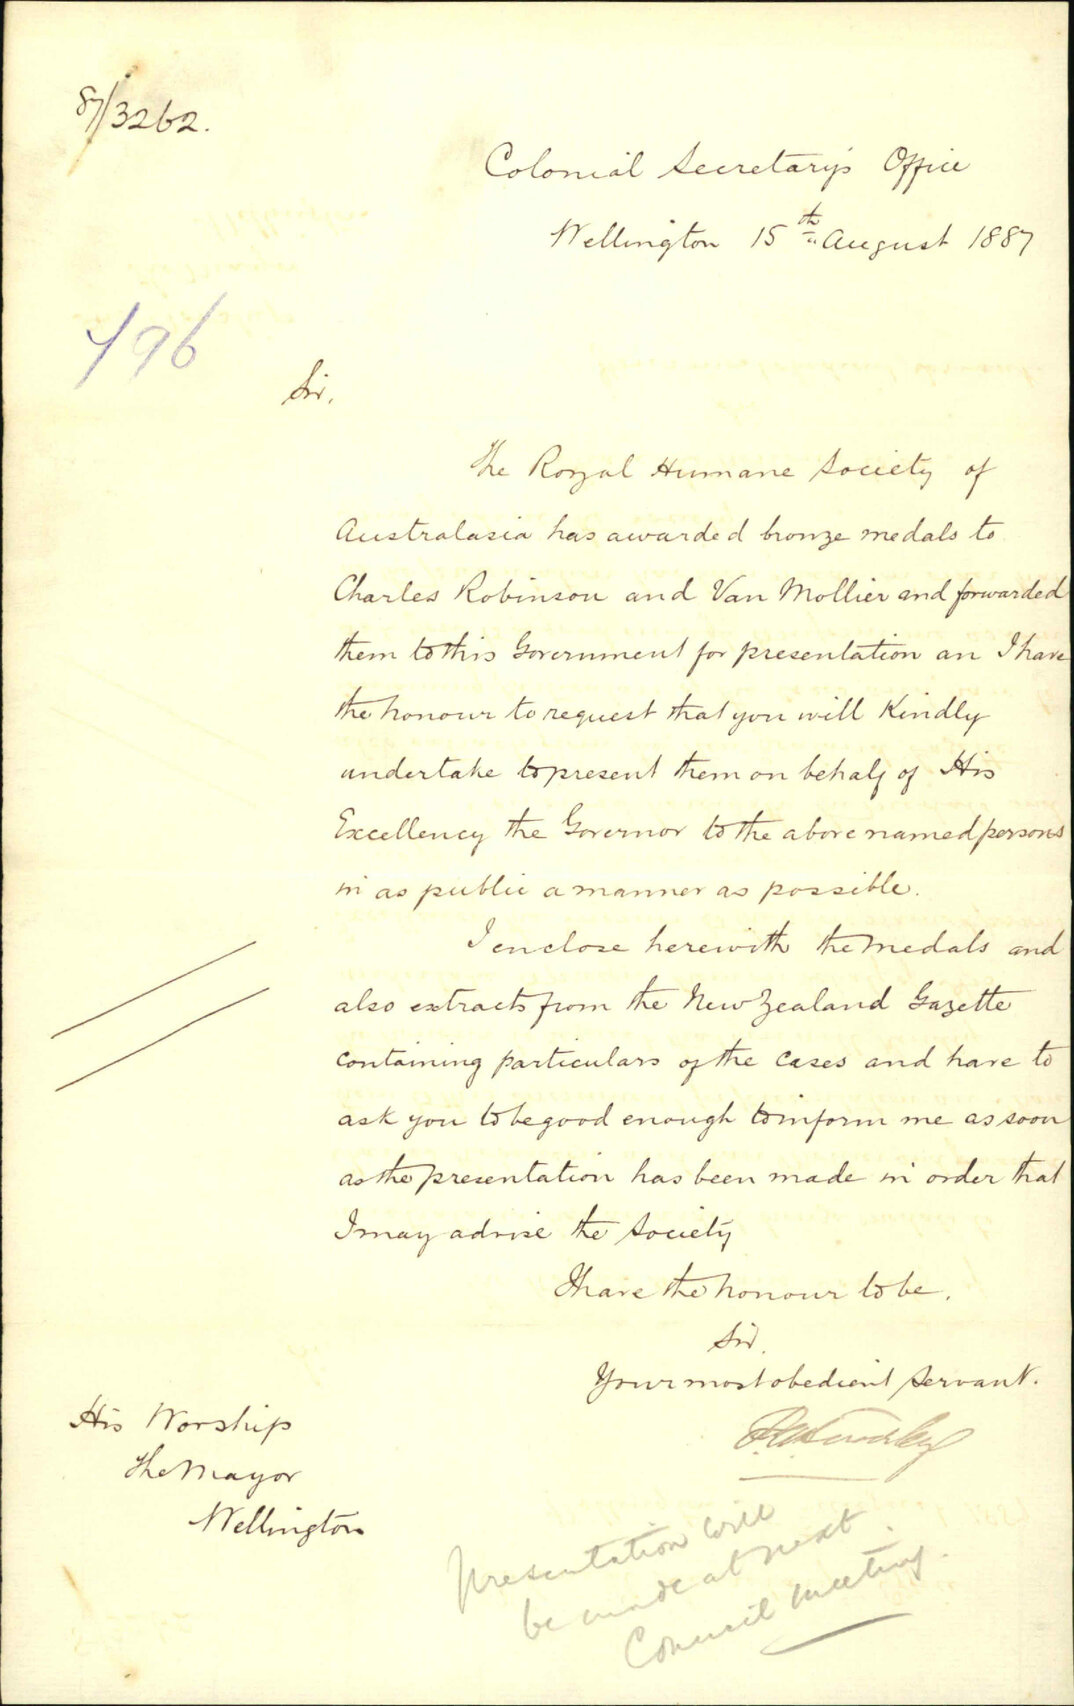 87/3262.
Colonial Secretary's Office
Wellington 15th August 1887
796
Sir,
The Royal Humane Society of
Australasia has awarded bronze medals to
Charles Robinson and Van Mollier and forwarded
them to this Government for presentation an I have
the honour to request that you will Kindly
undertake to present them on behalf of His
Excellency the Governor to the above named persons
in as public a manner as possible.
I enclose herewith the medals and
also extracts from the New Zealand Gazette
containing particulars of the cases and have to
ask you to be good enough to inform me as soon
as the presentation has been made in order that
I may advise the Society
I have the honour to be.
Sir,
Your most obedient Servant.
His Worship
The Mayor
Wellington
Presentation will
be made at next
Council meeting.